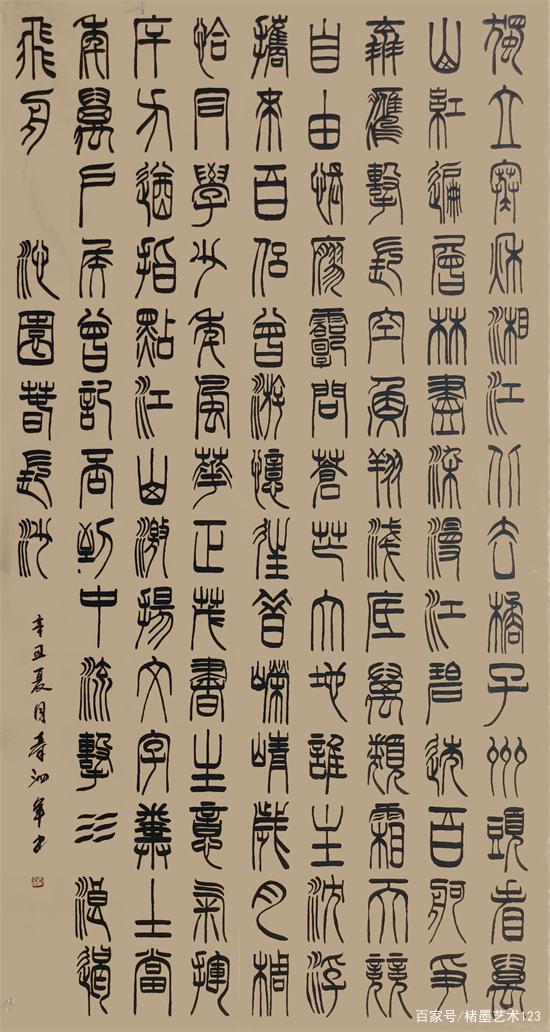 獨立寒秋湘江北去橘子州頭看萬
山紅遍層林盡染漫江碧透百舸爭
流鷹擊長空魚翔淺底萬類霜天競
自由悵寥廓問蒼茫大地誰主沈浮
攜來百侶曾游憶往昔嶸崝歲月稠
恰同學少年風華正茂書生意氣揮
斥方遒指點江山激揚文字糞土當
年萬戶侯曾記否到中流擊水浪遏
飛舟 沁園春長沙
辛丑夏月 泗年书
百家号/楮墨艺术123